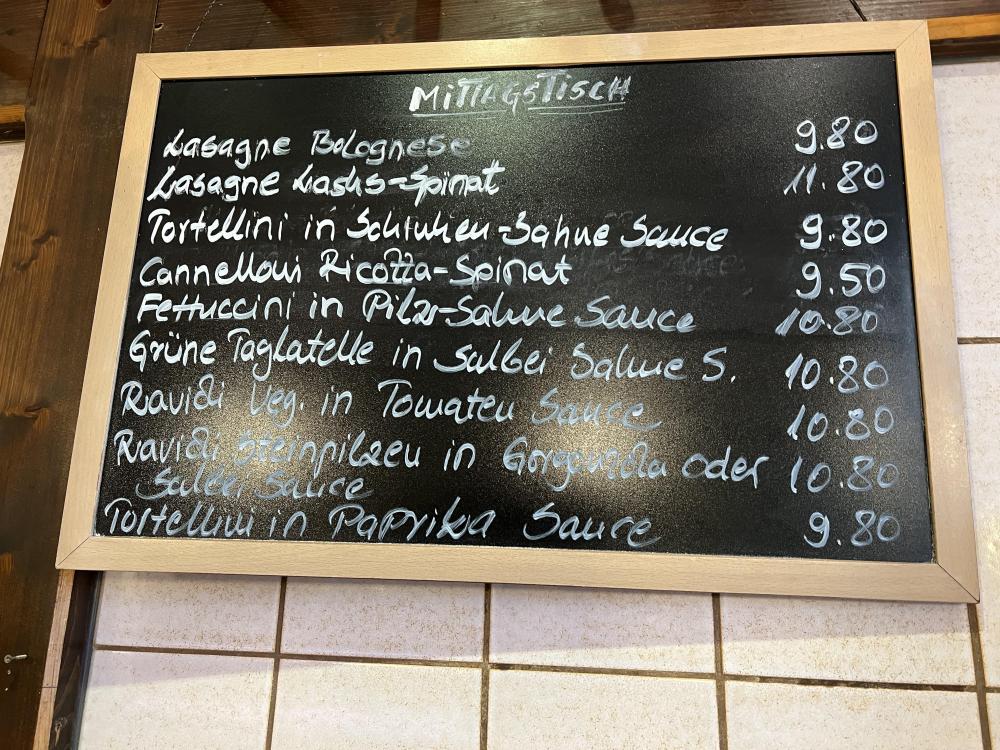 MITTAGSTISCH
Lasagne Bolognese 9.80
Lasagne Lachs-Spinat 11.80
Tortellini in Schinken-Sahne Sauce 9.80
Cannelloni Ricotta-Spinat 9.50
Fettuccini in Pilz-Sahne Sauce 10.80
Grüne Taglatelle in Salbei Sahne S. 10.80
Ravioli Veg. in Tomaten Sauce 10.80
Ravioli Steinpilzen in Gorgonzola oder 10.80
Salbei Sauce
Tortellini in Paprika Sauce 9.80